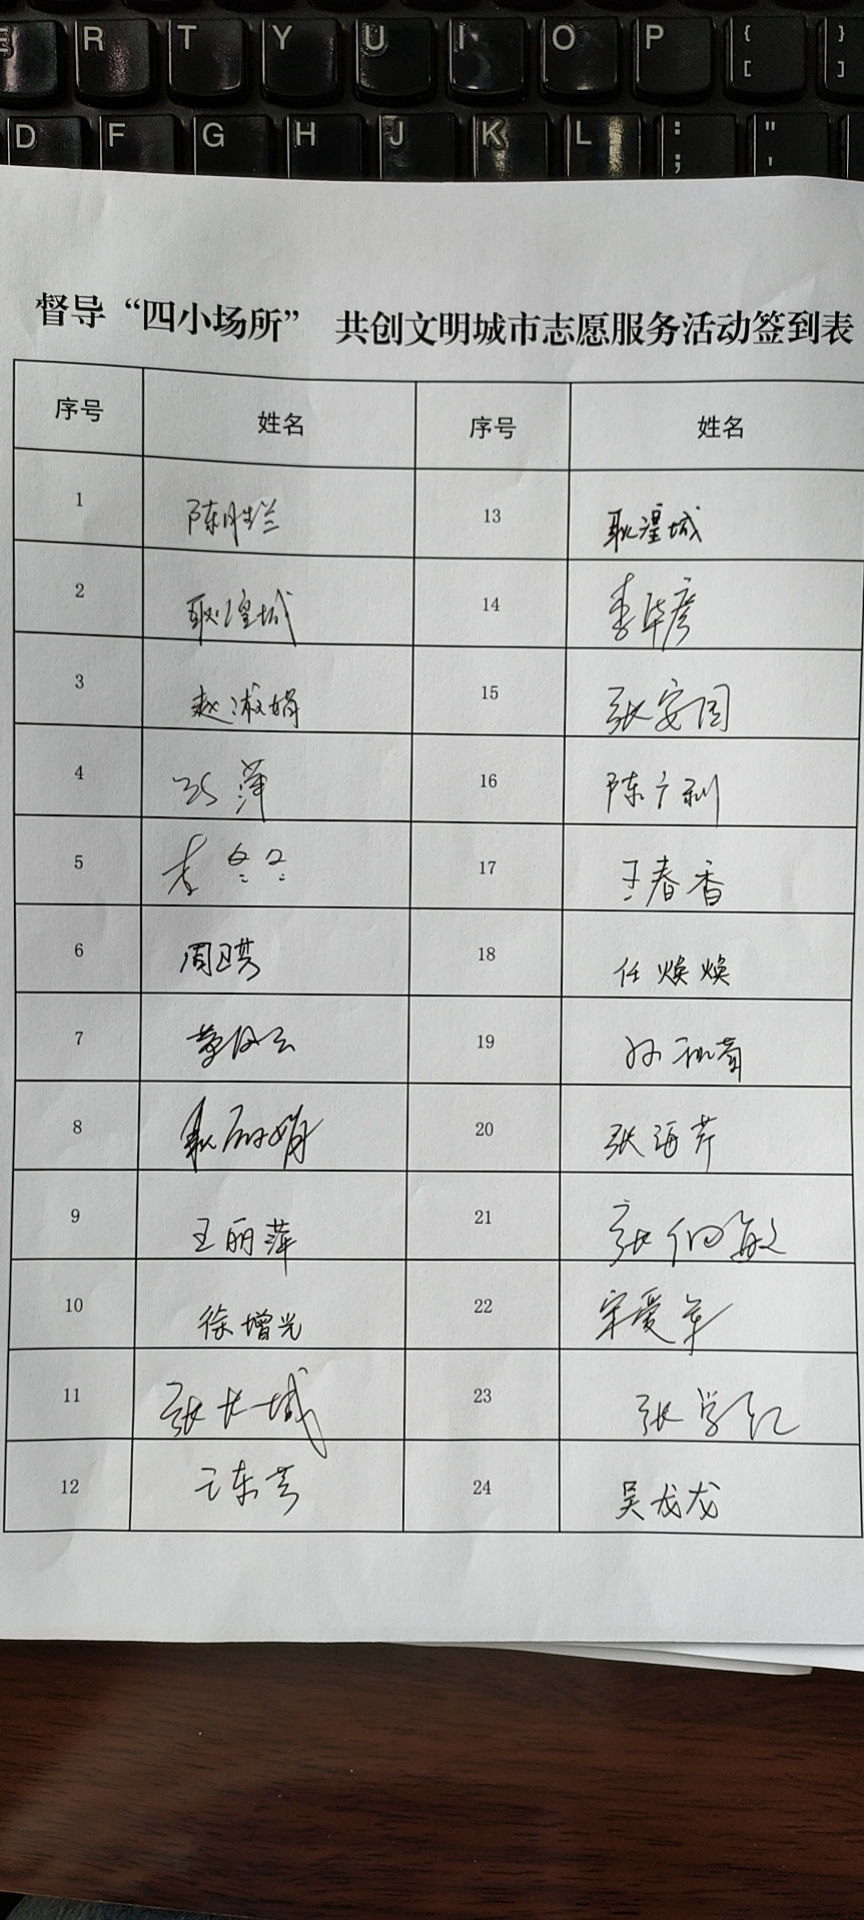 E R T Y U I O P { [ } ]
D F G H J K L : ; " '
督导“四小场所” 共创文明城市志愿服务活动签到表
序号 姓名 序号 姓名
1 陈胜兰 13 耿湟城
2 耿湟城 14 李华彦
3 赵淑娟 15 张安国
4 萍 16 陈广利
5 李冬冬 17 王春香
6 周卫英 18 任焕焕
7 19 孙
8 丽娟 20 张海芹
9 王丽萍 21 张伯敏
10 徐增光 22 宋爱军
11 张长城 23 张学红
12 王东芳 24 吴龙龙